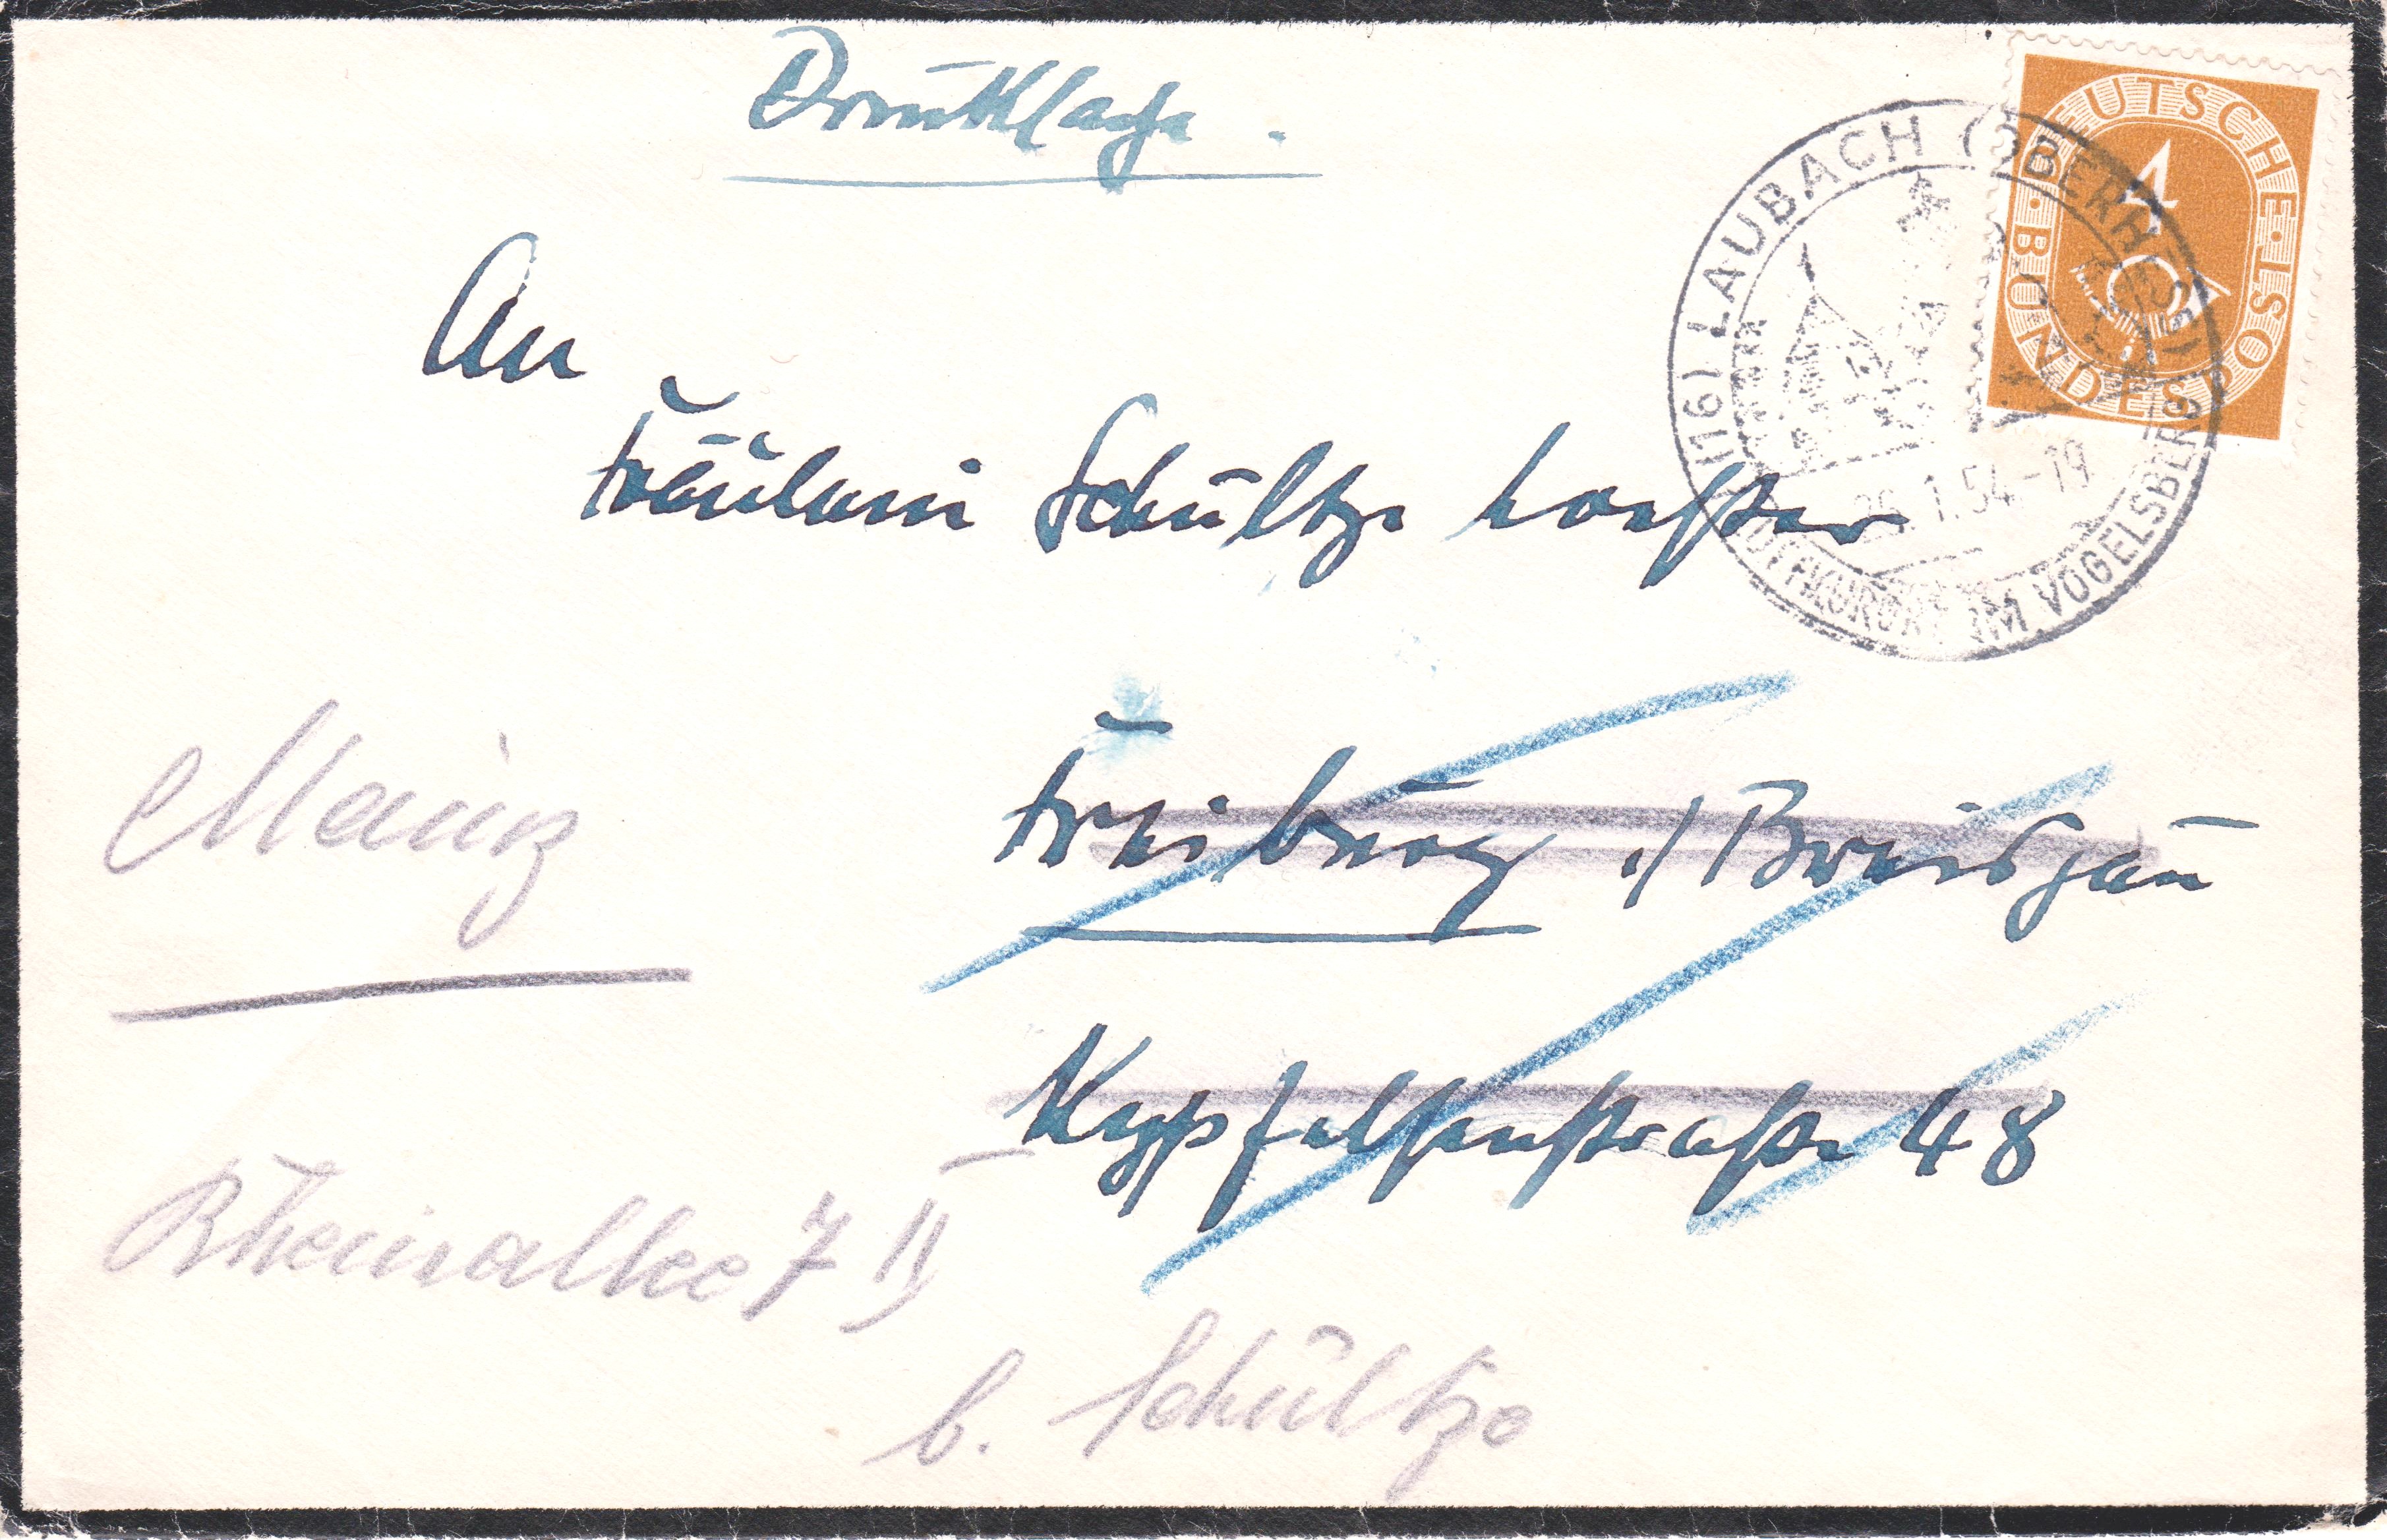 Drucksache.
DEUTSCHE BUNDESPOST
4
(16) LAUBACH (OBERHESS)
1.54-19
LUFTKURORT IM VOGELSBERG
An
Fräulein Schultze
Freiburg i/Breisgau
Mainz
straße 48
Rheinallee 7 II
b. Schultze